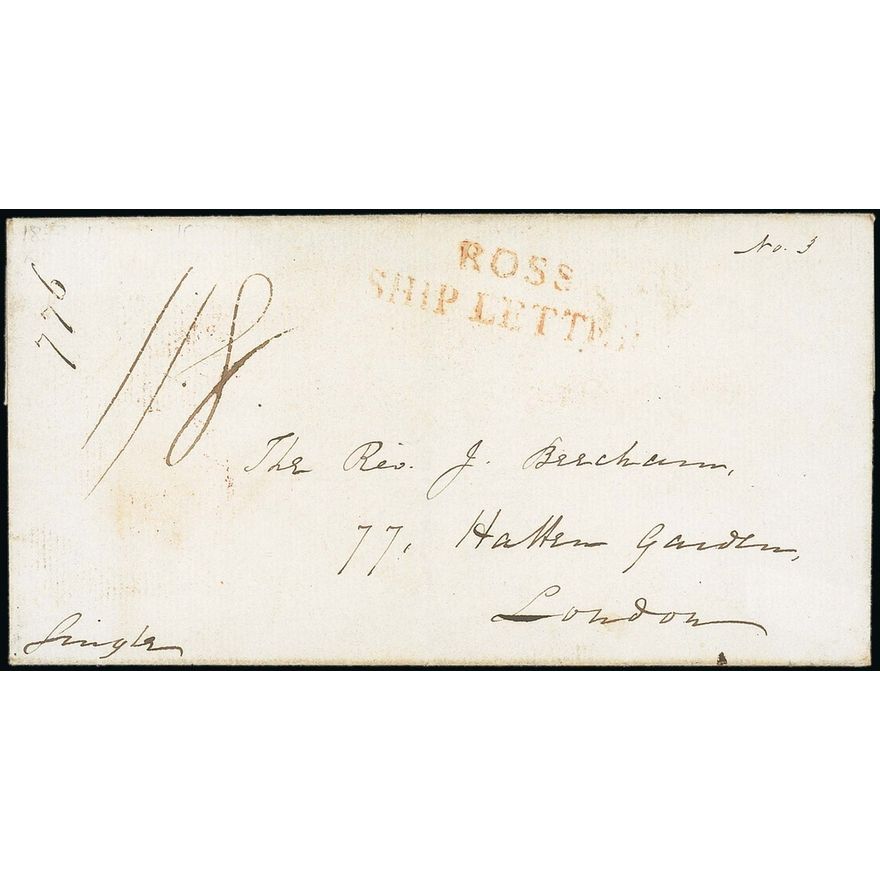 No. 3
776
1/8
ROSS
SHIP LETTER
The Rev. J. Beecham,
77, Hatten Garden,
London
Single